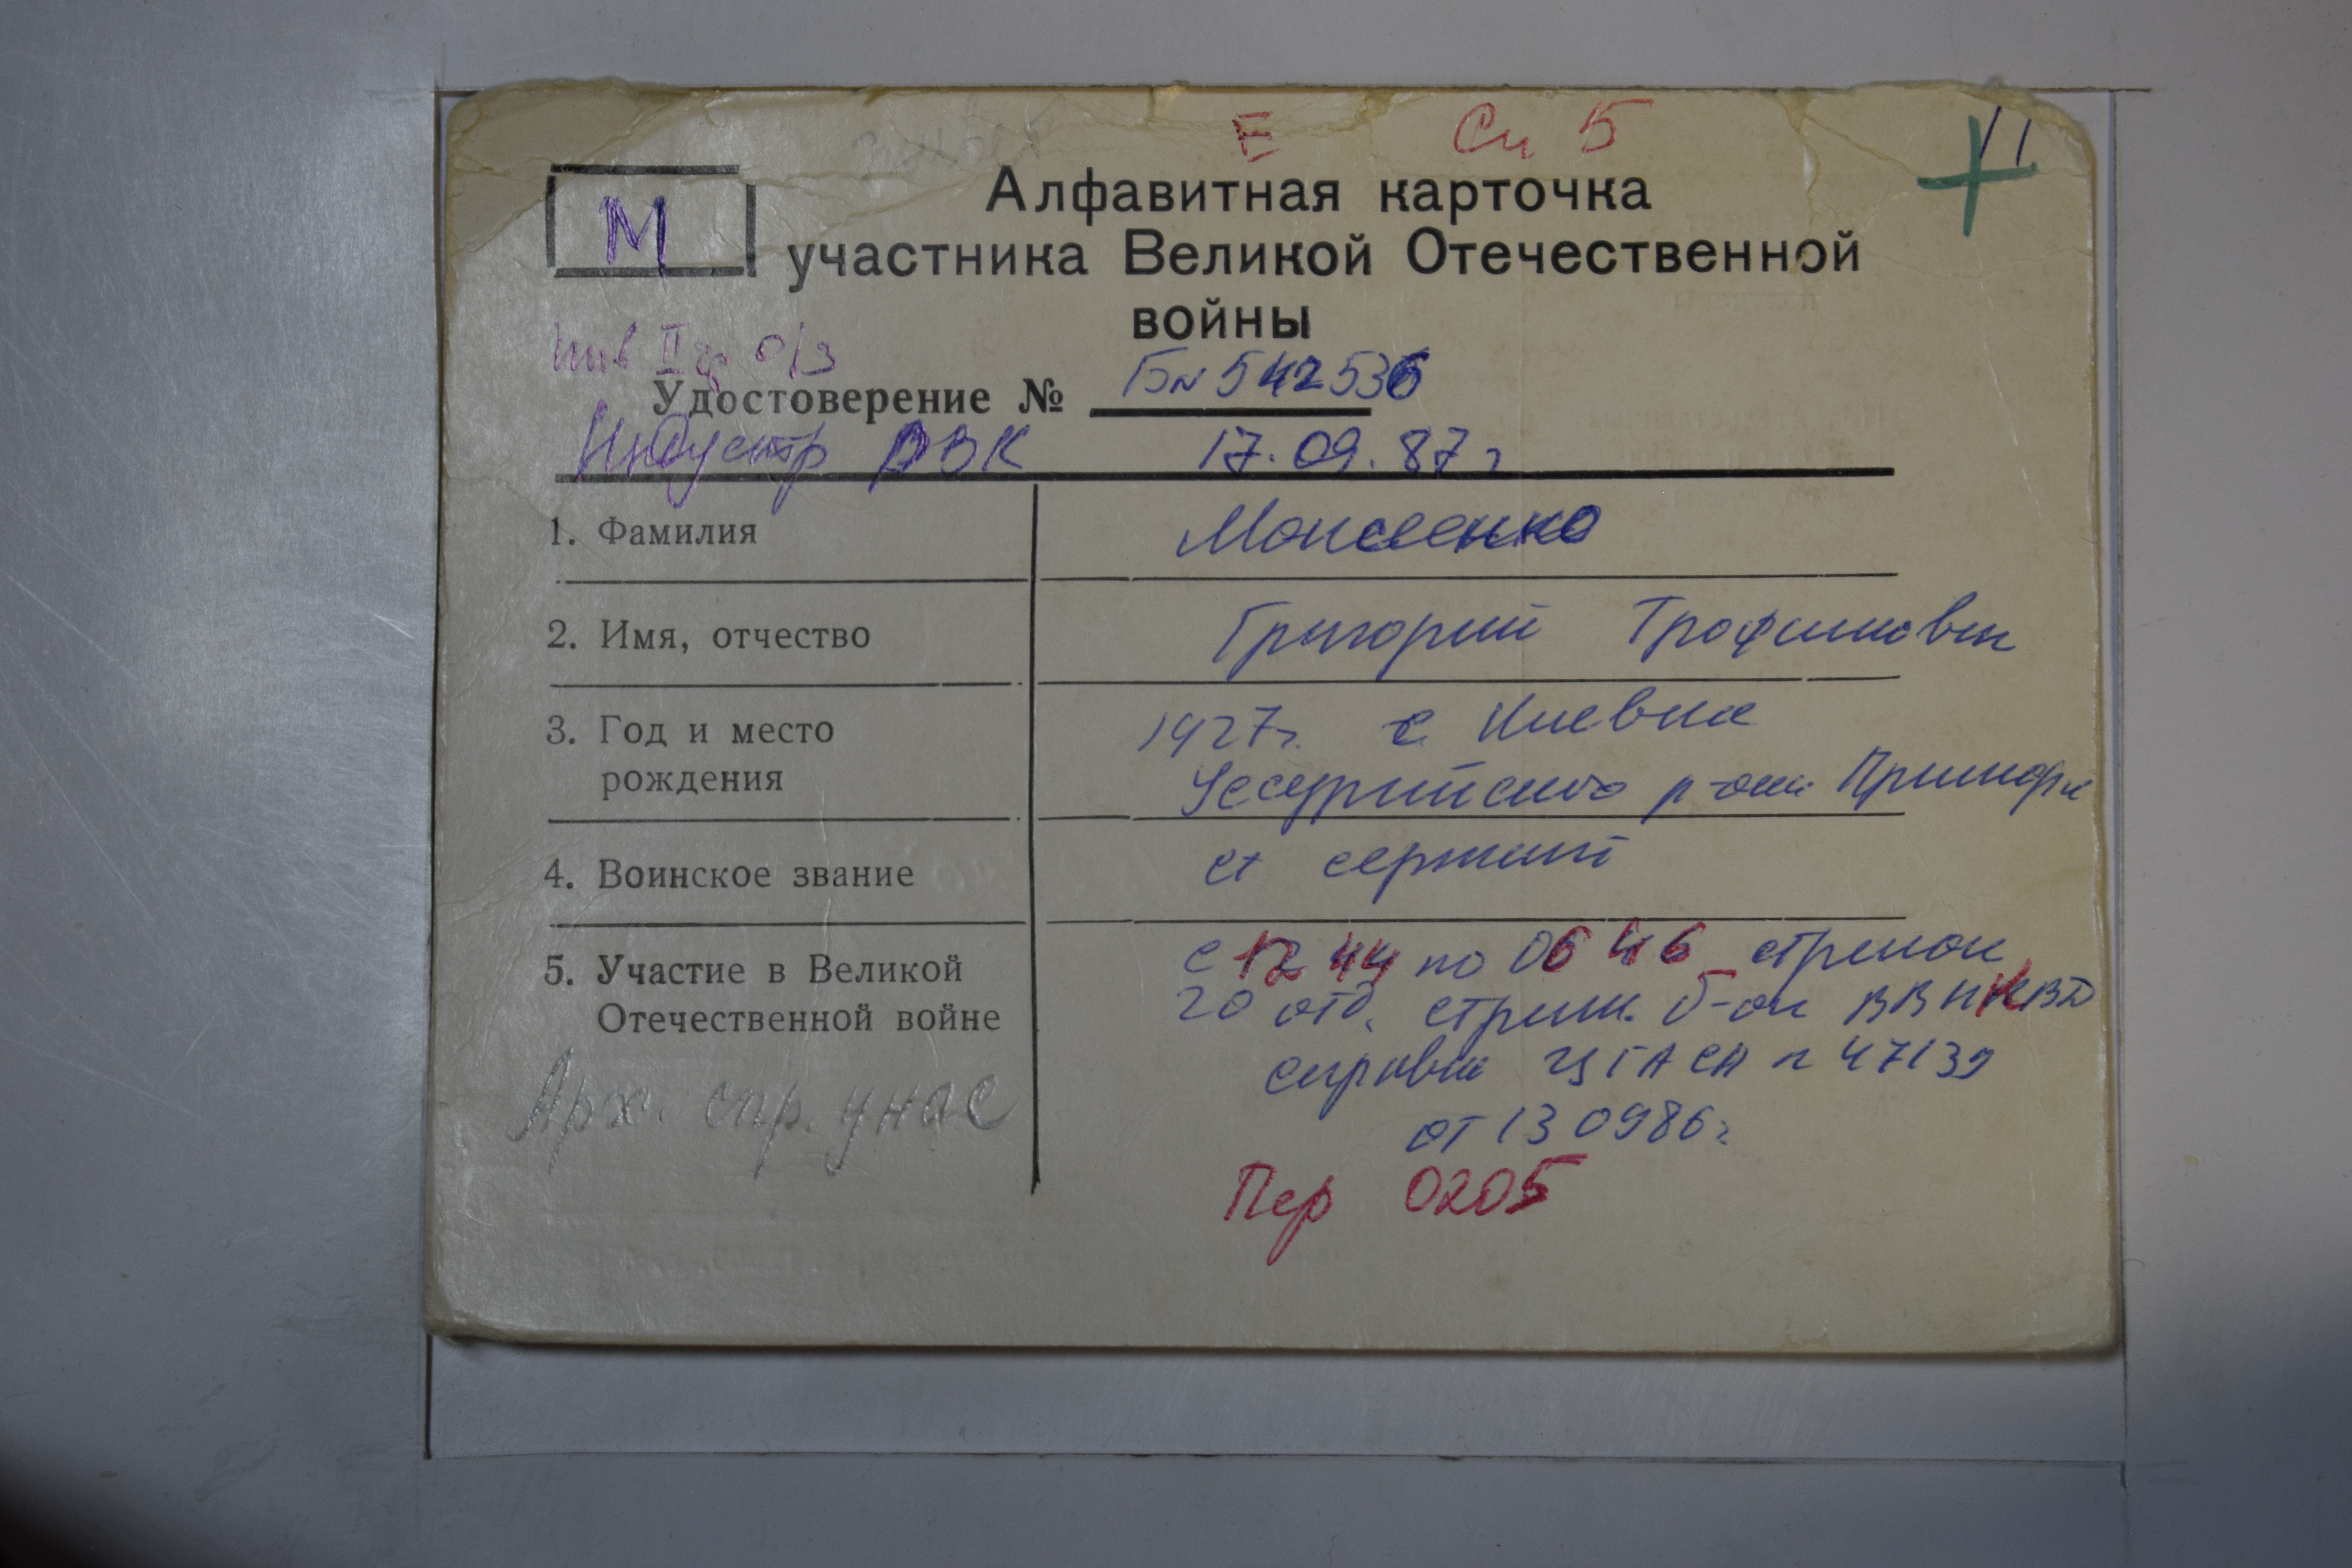 Е Сп 5
11
М
Алфавитная карточка
участника Великой Отечественной
войны
инв II гр о/з
Удостоверение № БN 542536
Индустр РВК 17.09.87 г
1. Фамилия Моисеенко
2. Имя, отчество Григорий Трофимович
3. Год и место 1927г. с Киевка
рождения Уссурийского р-она Приморк
4. Воинское звание ст сержант
5. Участие в Великой с 12 44 по 06 46 стрелок
Отечественной войне 20 отд. стрелк. б-он ВВ НКВД
справка ЦГАСА N 47139
Арх. спр. у нас
от 13 09 86 г
Пер 0205